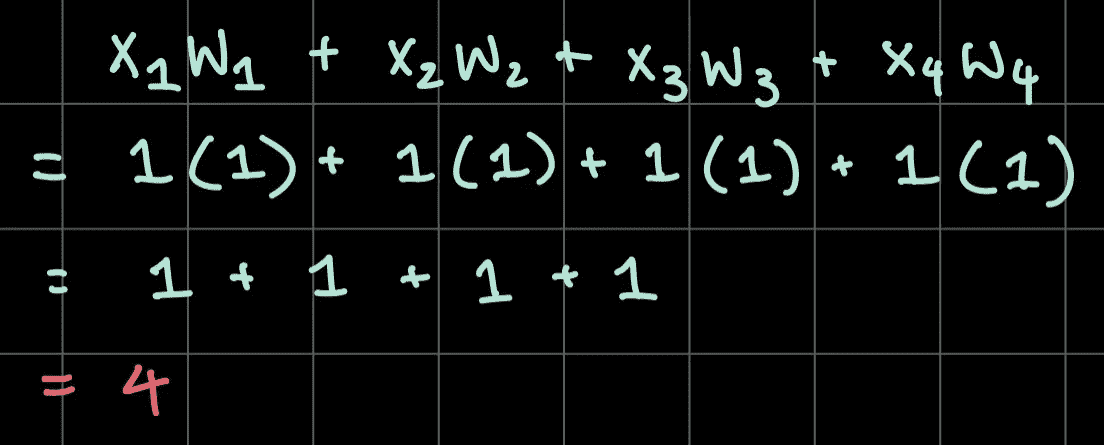 X₁W₁ + X₂W₂ + X₃W₃ + X₄W₄
= 1(1) + 1(1) + 1(1) + 1(1)
= 1 + 1 + 1 + 1
= 4